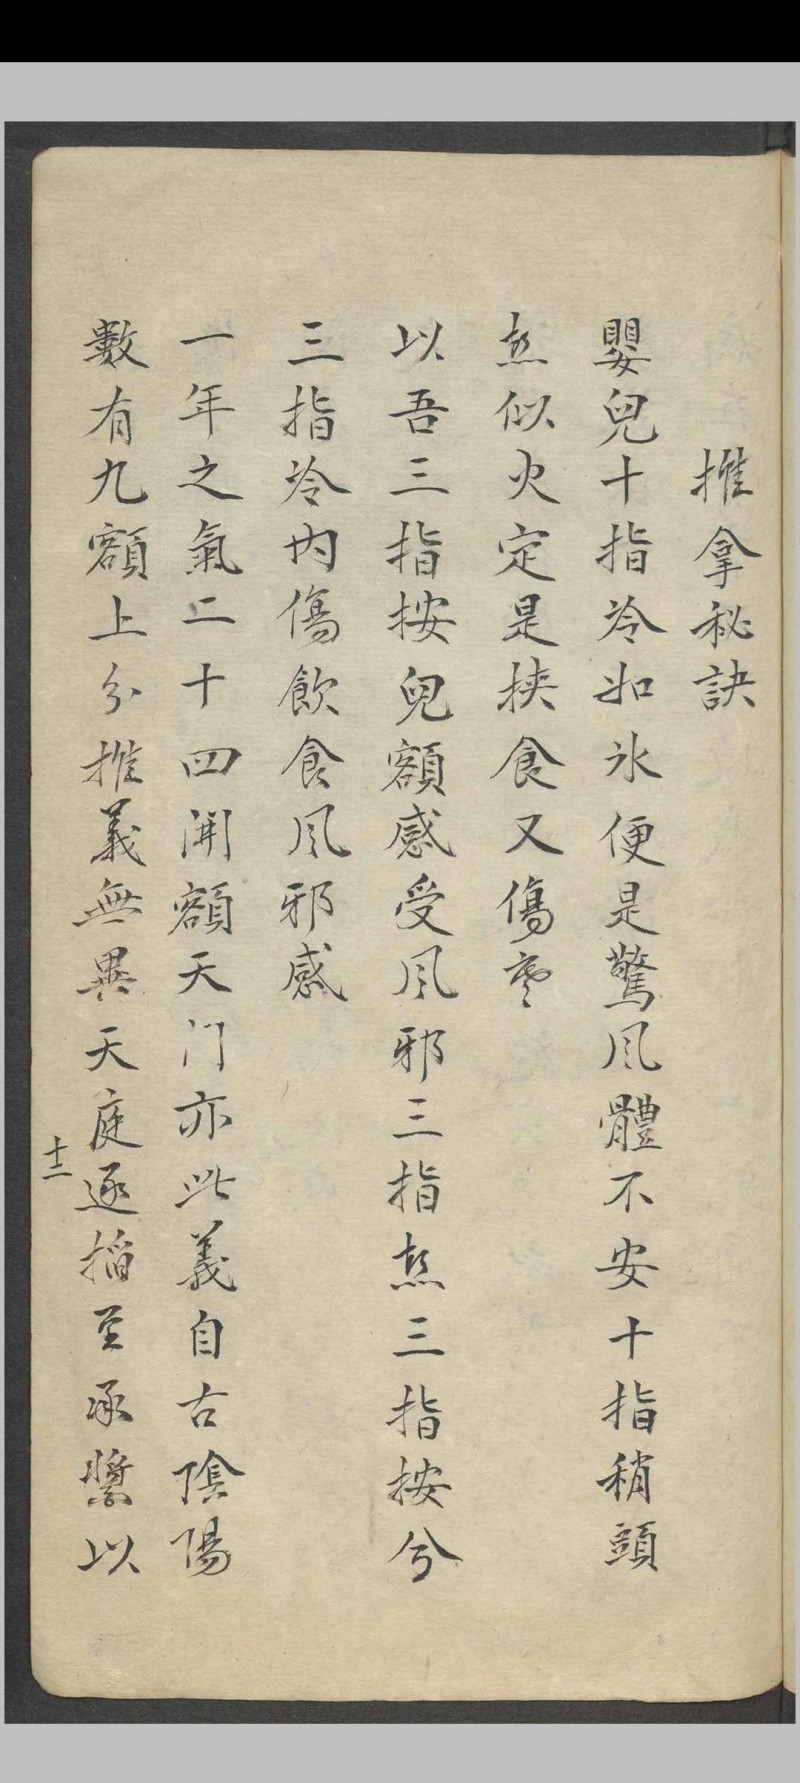 推拿秘訣
嬰兒十指冷如氷便是驚风體不安十指稍頭
热似火定是挟食又傷寒
以吾三指按兒額感受风邪三指热三指按兮
三指冷内傷飲食风邪感
一年之氣二十四開額天门亦此義自古陰陽
數有九額上分推義無異天庭逐掐至承漿以
十二